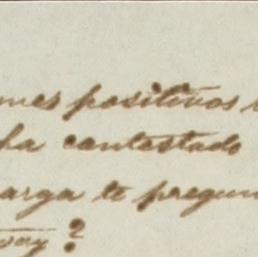 positivos
ha contestado
arga te pregun
?